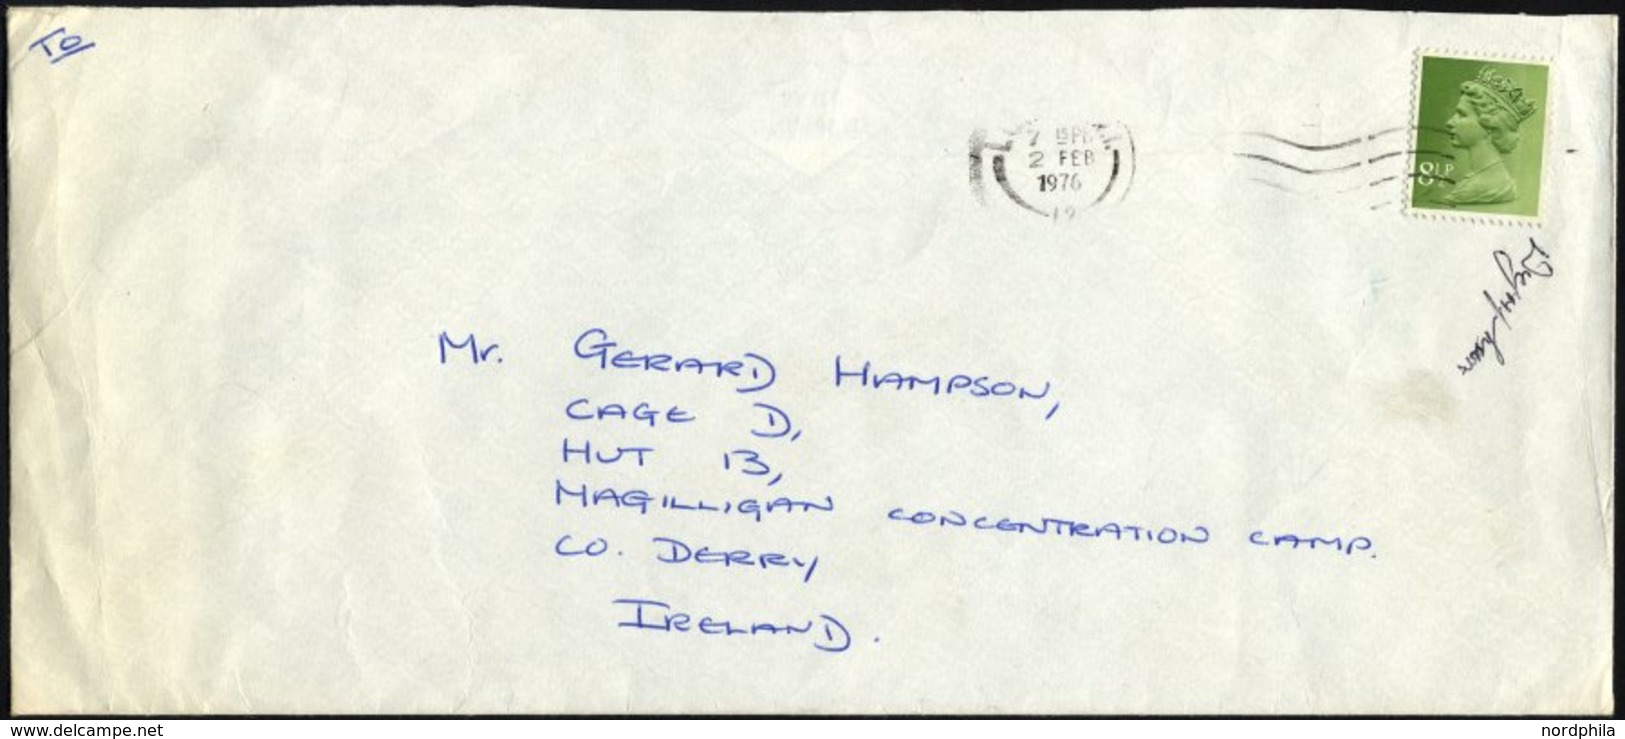 To
7 15 PM
2 FEB
1976
12
8½P
Mr. GERARD HAMPSON,
CAGE D,
HUT 13,
MAGILLIGAN CONCENTRATION CAMP.
CO. DERRY
IRELAND.
www.delcampe.net
nordphila